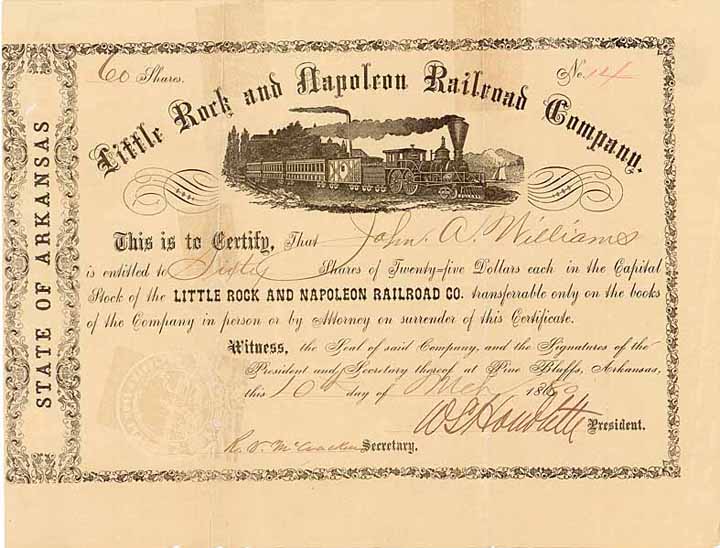 60 Shares.
No. 14
Little Rock and Napoleon Railroad Company.
STATE OF ARKANSAS
This is to Certify, That John. A. Williams
is entitled to Sixty Shares of Twenty=five Dollars each in the Capital
Stock of the LITTLE ROCK AND NAPOLEON RAILROAD CO. transferrable only on the books
of the Company in person or by Attorney on surrender of this Certificate.
Witness, the Seal of said Company, and the Signatures of the
President and Secretary thereof at Pine Bluffs, Arkansas,
this 10th day of Mch 186
President.
R. V. McCracken Secretary.